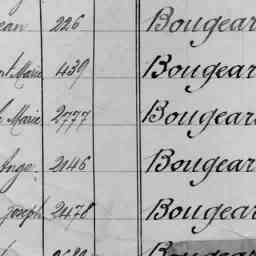 ean 226 Bougear
Marie 439 Bougear
Marie 2777 Bougear
Ange 2146 Bougear
Joseph 2478 Bougear
Bougear